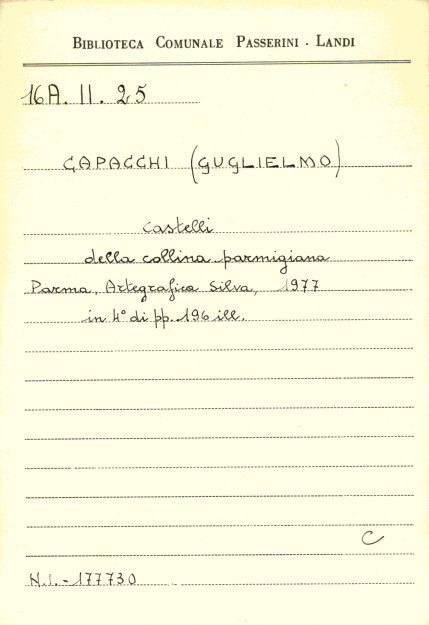 BIBLIOTECA COMUNALE PASSERINI - LANDI
16A. II. 25
CAPACCHI (GUGLIELMO)
Castelli
della collina parmigiana
Parma, Artegrafica Silva, 1977
in 4° di pp. 196 ill.
C
N.I. - 177730